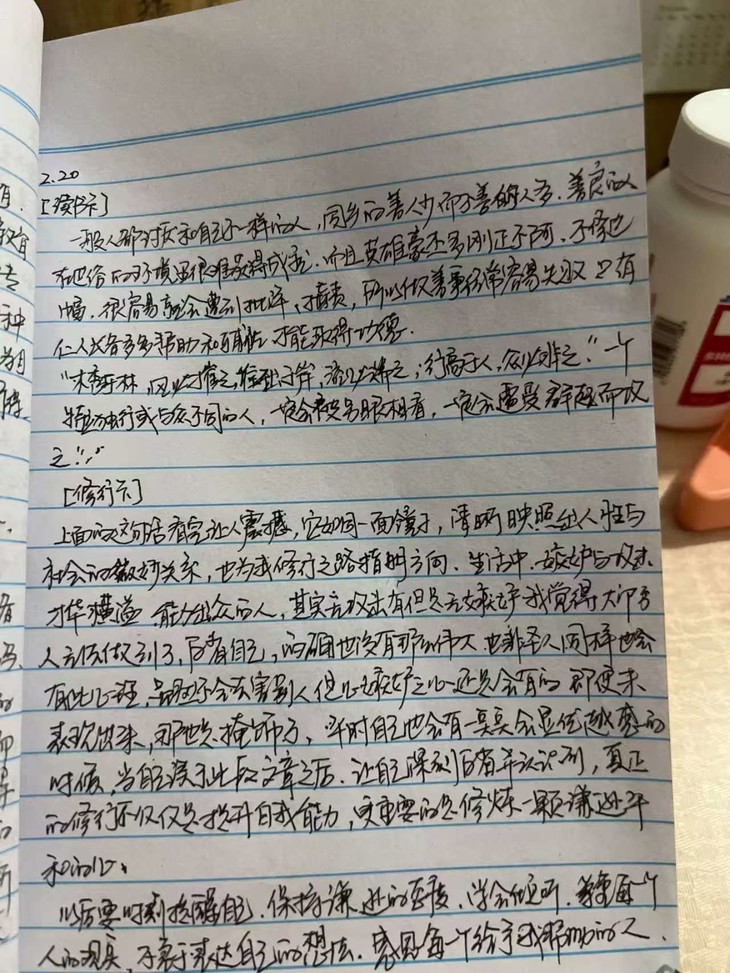 2.20
[读书卡]
一般人都讨厌和自己不一样的人，同乡的善人少而不善的人多．善良的人
在世俗的环境里很难获得成就．而且英雄豪杰多刚正不阿．不修边
幅．很容易就会遭到批评，指责，所以做善事经常容易失败 只有
仁人长者多多帮助和辅助 才能取得功德．
"木秀于林，风必摧之，堆出于岸，流必湍之，行高于人，众必非之．"一个
特立独行或与众不同的人，一定会被另眼相看，一定会遭受群起而攻
之！
[修行卡]
上面的这句话看完让人震撼，它如同一面镜子，清晰映照出人性与
社会的微妙关系，也为我修行之路指明方向．生活中．嫉妒与攻击
才华横溢 能力出众的人，其实言攻击有但是无嫉妒我觉得大部分
人无法做到，反省自己，的确也没有那么伟大 也非圣人同样也会
有此心理，虽然不会去害别人但心嫉妒之心还是会有的 即便未
表现出来，那也是掩饰了，平时自己也会有一莫莫会显优越感的
时候，当自己读了此段文章之后．让自己深刻反省并认识到，真正
的修行不仅仅是提升自我能力，更重要的是修炼一颗谦逊平
和的心．
以后要时刻提醒自己．保持谦逊的态度．学会倾听．尊重每一个
人的观点，不急于表达自己的想法．感恩每一个给予我帮助的人．